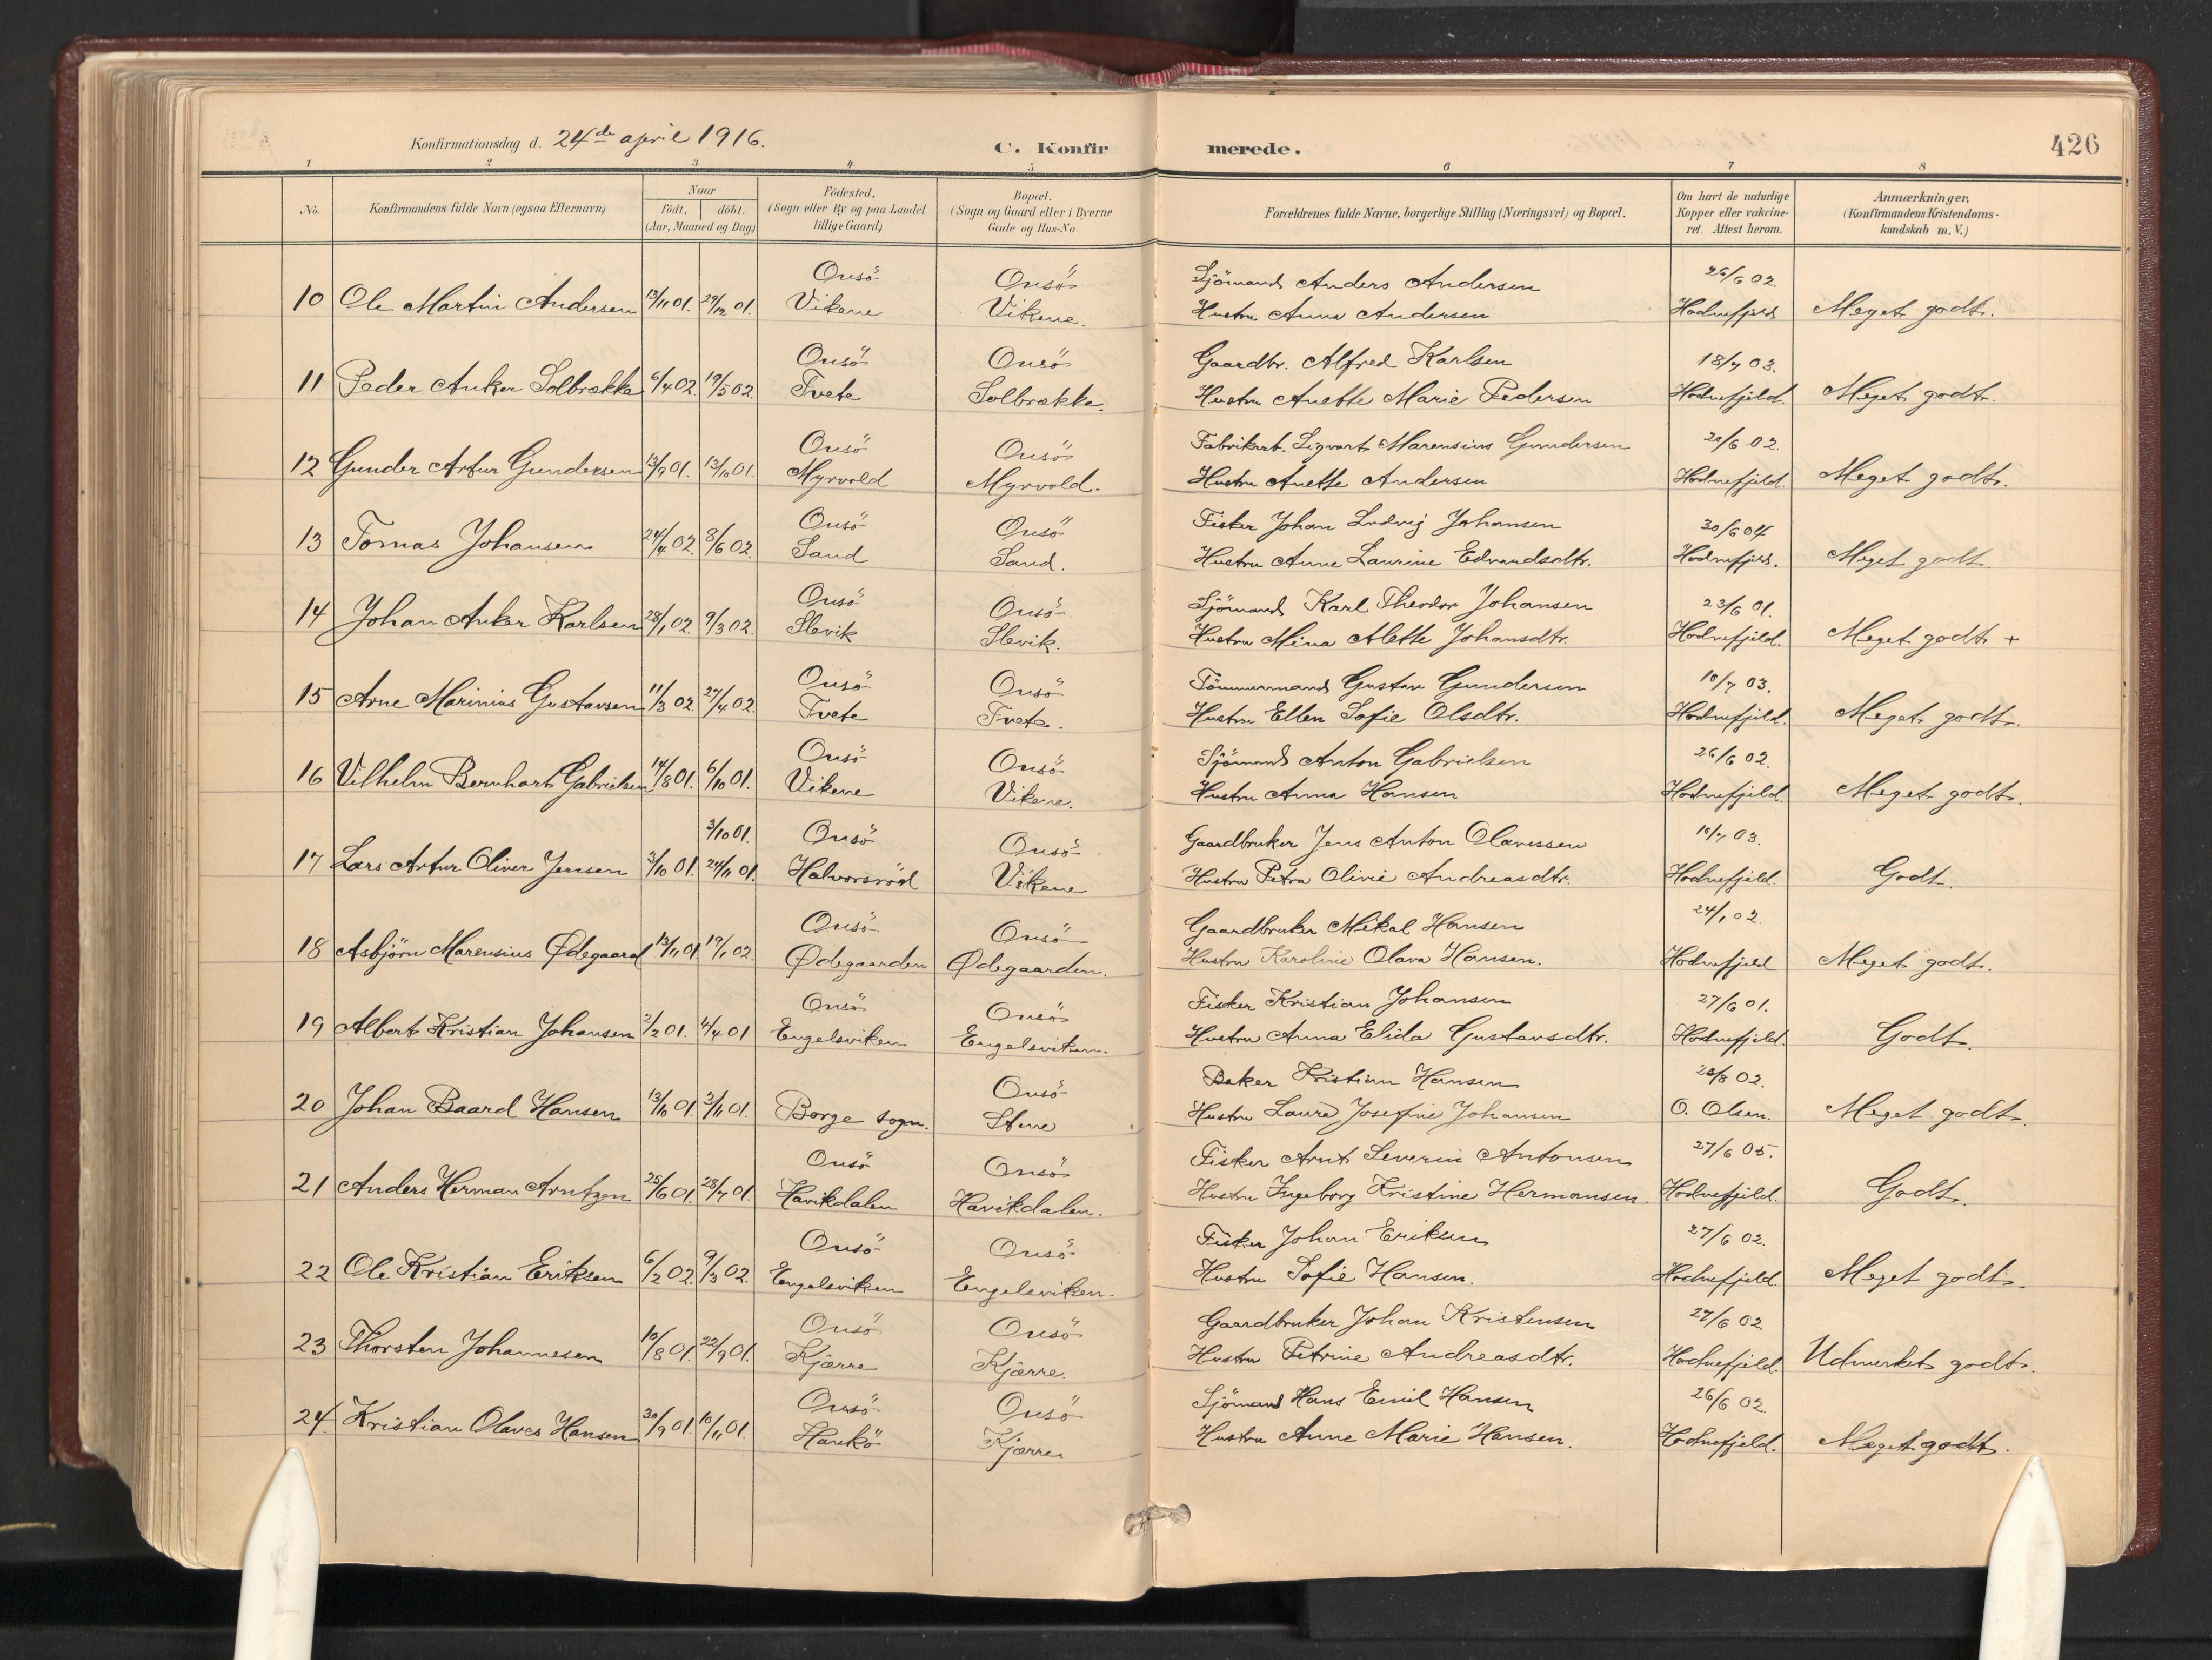 Konfirmationsdag d. 24de april 1916.
C. Konfirmerede.
426
1 2 3 4 5 6 7 8
No.
Konfirmandens fulde Navn (ogsaa Efternavn)
Naar
født. døbt.
(Aar, Maaned og Dag)
Födested.
(Sogn eller By og paa Landet
tillige Gaard)
Bopæl.
(Sogn og Gaard eller i Byerne
Gade og Hus-No.
Forældrenes fulde Navne, borgerlige Stilling (Næringsvei) og Bopæl.
Om havt de naturlige
Kopper eller vakcine-
ret. Attest herom.
Anmærkninger.
(Konfirmandens Kristendoms-
kundskab m. V.)
Onsö Onsö Sjömand Anders Andersen 26/6 02.
10 Ole Martin Andersen 13/11 01. 29/12 01. Vikene Vikene. Hustru Anna Andersen Hodnefjeld Meget godt.
Onsö Onsö Gaardbr. Alfred Karlsen 18/7 03.
11 Peder Anker Solbrække 6/4 02. 19/5 02. Tvete Solbrække. Hustru Anette Marie Pedersen Hodnefjeld. Meget godt.
Onsö Onsö Fabrikarb. Sigvart Marensius Gundersen 20/6 02.
12 Gunder Artur Gundersen 13/9 01. 13/10 01. Myrvold Myrvold. Hustru Anette Andersen Hodnefjeld. Meget godt.
Onsö Onsö Fisker Johan Ludvig Johansen 30/6 04
13 Tomas Johansen 24/4 02. 8/6 02. Sand Sand. Hustru Anne Laurine Edvardsdtr. Hodnefjeld. Meget godt.
Onsö Onsö Sjömand Karl Theodor Johansen 23/6 01.
14 Johan Anker Karlsen 28/1 02. 9/3 02. Slevik Slevik. Hustru Mina Alette Johansdtr. Hodnefjeld. Meget godt +
Onsö Onsö Tömmermand Gustav Gundersen 10/7 03.
15 Arne Marinius Gustavsen 11/3 02. 27/4 02. Tvete Tvete. Hustru Ellen Sofie Olsdtr. Hodnefjeld. Meget godt.
Onsö Onsö Sjömand Anton Gabrielsen 26/6 02.
16 Vilhelm Bernhart Gabrielsen 14/8 01. 6/10 01. Vikene Vikene. Hustru Anna Hansen Hodnefjeld. Meget godt.
3/10 01. Onsö Onsö Gaardbruker Jens Anton Olavessen 10/7 03.
17 Lars Artur Oliver Jensen 3/10 01. 24/11 01. Halvorsröd Vikene Hustru Petra Olivie Andreasdtr. Hodnefjeld. Godt.
Onsö Onsö Gaardbruker Mikal Hansen 24/1 02.
18 Asbjörn Marensius Ødegaard 13/11 01 19/1 02. Ødegaarden Ødegaarden. Hustru Karoline Olava Hansen. Hodnefjeld Meget godt.
Onsö Onsö Fisker Kristian Johansen 27/6 01.
19 Albert Kristian Johansen 2/2 01. 4/4 01 Engelsviken Engelsviken. Hustru Anna Elida Gustavsdtr. Hodnefjeld. Godt.
Onsö Baker Kristian Hansen 20/8 02.
20 Johan Baard Hansen 13/10 01 3/11 01. Borge sogn. Stene Hustru Laura Josefine Johansen O. Olsen. Meget godt.
Onsö Onsö Fisker Arnt Severin Antonsen 27/6 05.
21 Anders Herman Arntzen 25/6 01. 28/7 01. Havikdalen Havikdalen. Hustru Ingeborg Kristine Hermansen. Hodnefjeld. Godt.
Onsö Onsö Fisker Johan Eriksen 27/6 02.
22 Ole Kristian Eriksen 6/2 02. 9/3 02. Engelsviken Engelsviken. Hustru Sofie Hansen. Hodnefjeld. Meget godt.
Onsö Onsö Gaardbruker Johan Kristensen 27/6 02.
23 Thorsten Johannesen 10/8 01. 22/9 01. Kjærre Kjærre. Hustru Petrine Andreasdtr. Hodnefjeld. Udmerket godt.
Onsö Onsö Sjömand Hans Emil Hansen 26/6 02.
24. Kristian Olaves Hansen 30/9 01. 10/11 01. Hankö Kjærre Hustru Anne Marie Hansen. Hodnefjeld. Meget godt.